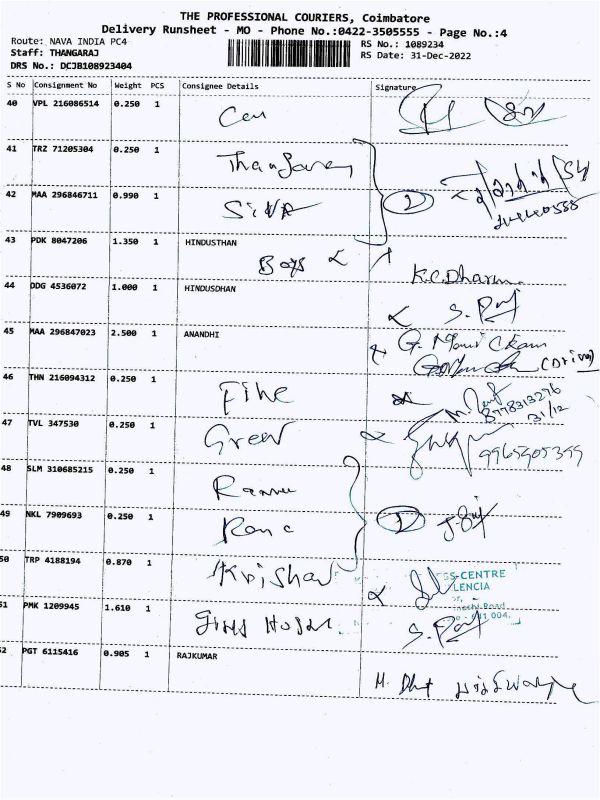 THE PROFESSIONAL COURIERS, Coimbatore
Delivery Runsheet - MO - Phone No.:0422-3505555 - Page No.:4
Route: NAVA INDIA PC4 RS No.: 1089234
Staff: THANGARAJ RS Date: 31-Dec-2022
DRS No.: DCJB108923404
S No Consignment No Weight PCS Consignee Details Signature
40 VPL 216086514 0.250 1
41 TRZ 71205304 0.250 1
42 MAA 296846711 0.990 1 Siva
2
43 PDK 8047206 1.350 1 HINDUSTHAN
Boys K.C.Dharm
44 DDG 4536072 1.000 1 HINDUSDHAN
S. Raj
45 MAA 296847023 2.500 1 ANANDHI
(Driver)
46 THN 216094312 0.250 1 Fine
8778313276
31/12
47 TVL 347530 0.250 1 Green
9965905399
48 SLM 310685215 0.250 1
49 NKL 7909693 0.250 1
50 TRP 4188194 0.870 1 Krishav
GS-CENTRE
LENCIA
Road
641 004.
51 PMK 1209945 1.610 1
S. Raj
52 PGT 6115416 0.905 1 RAJKUMAR